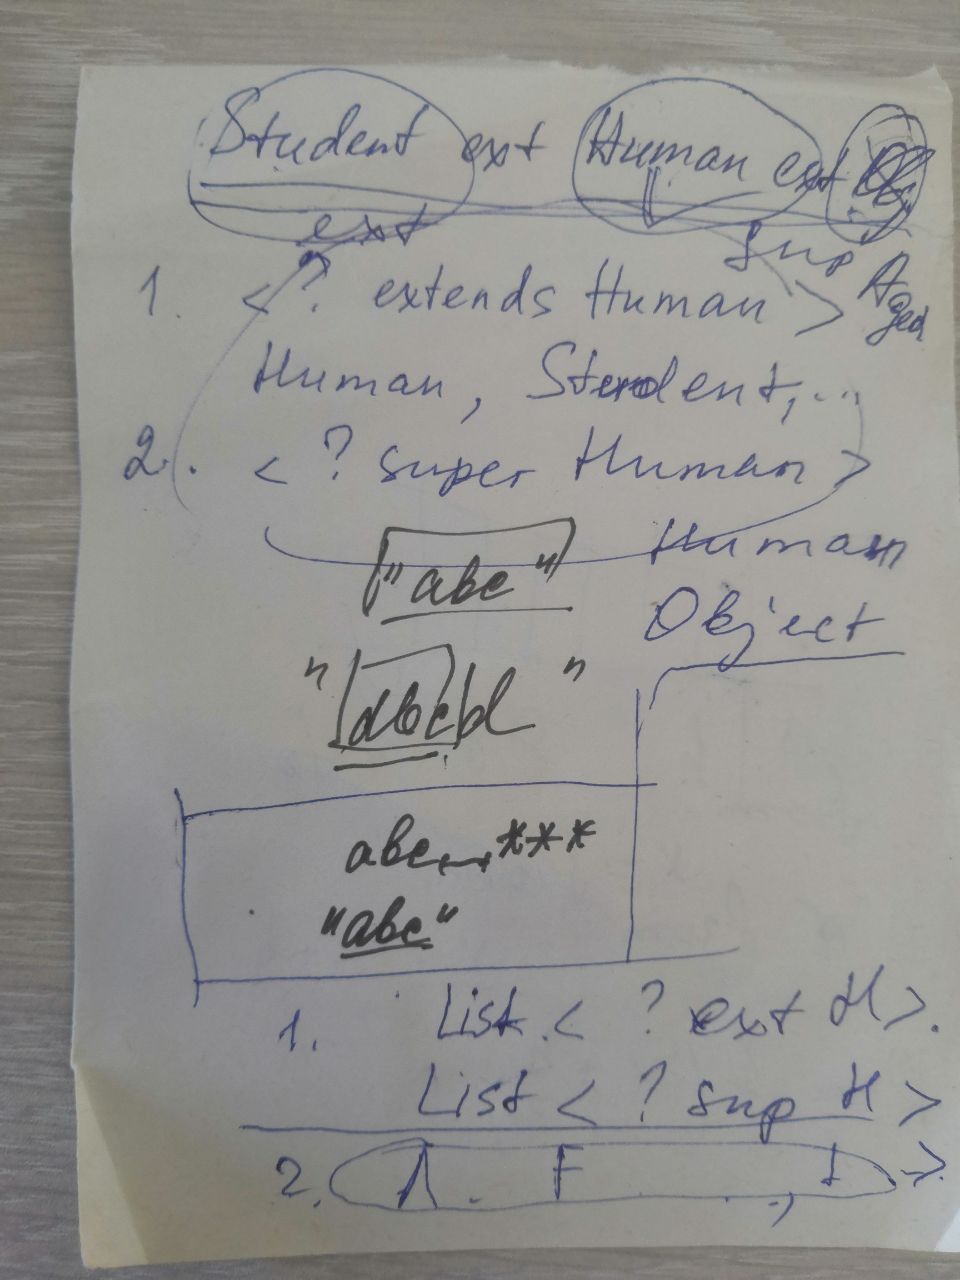 Student ext Human ext
ext
sup
1. <? extends Human> Aged
Human, Student, ...
2. <? super Human>
Human
"abc"
Object
"abcd"
abc...***
"abc"
1. List <? ext H>.
List <? sup H>
2.